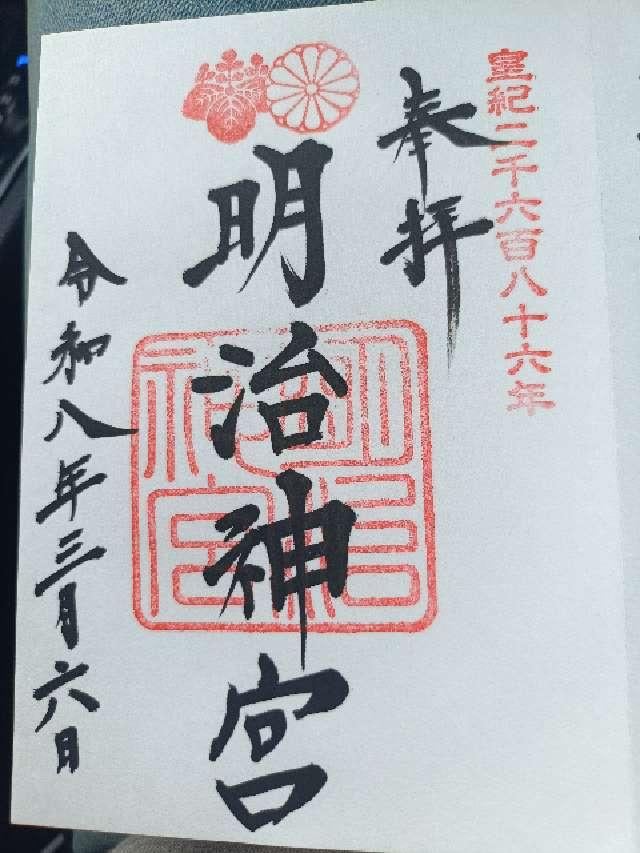 皇紀二千六百八十六年
奉拝
明治神宮
明治神宮
令和八年三月六日